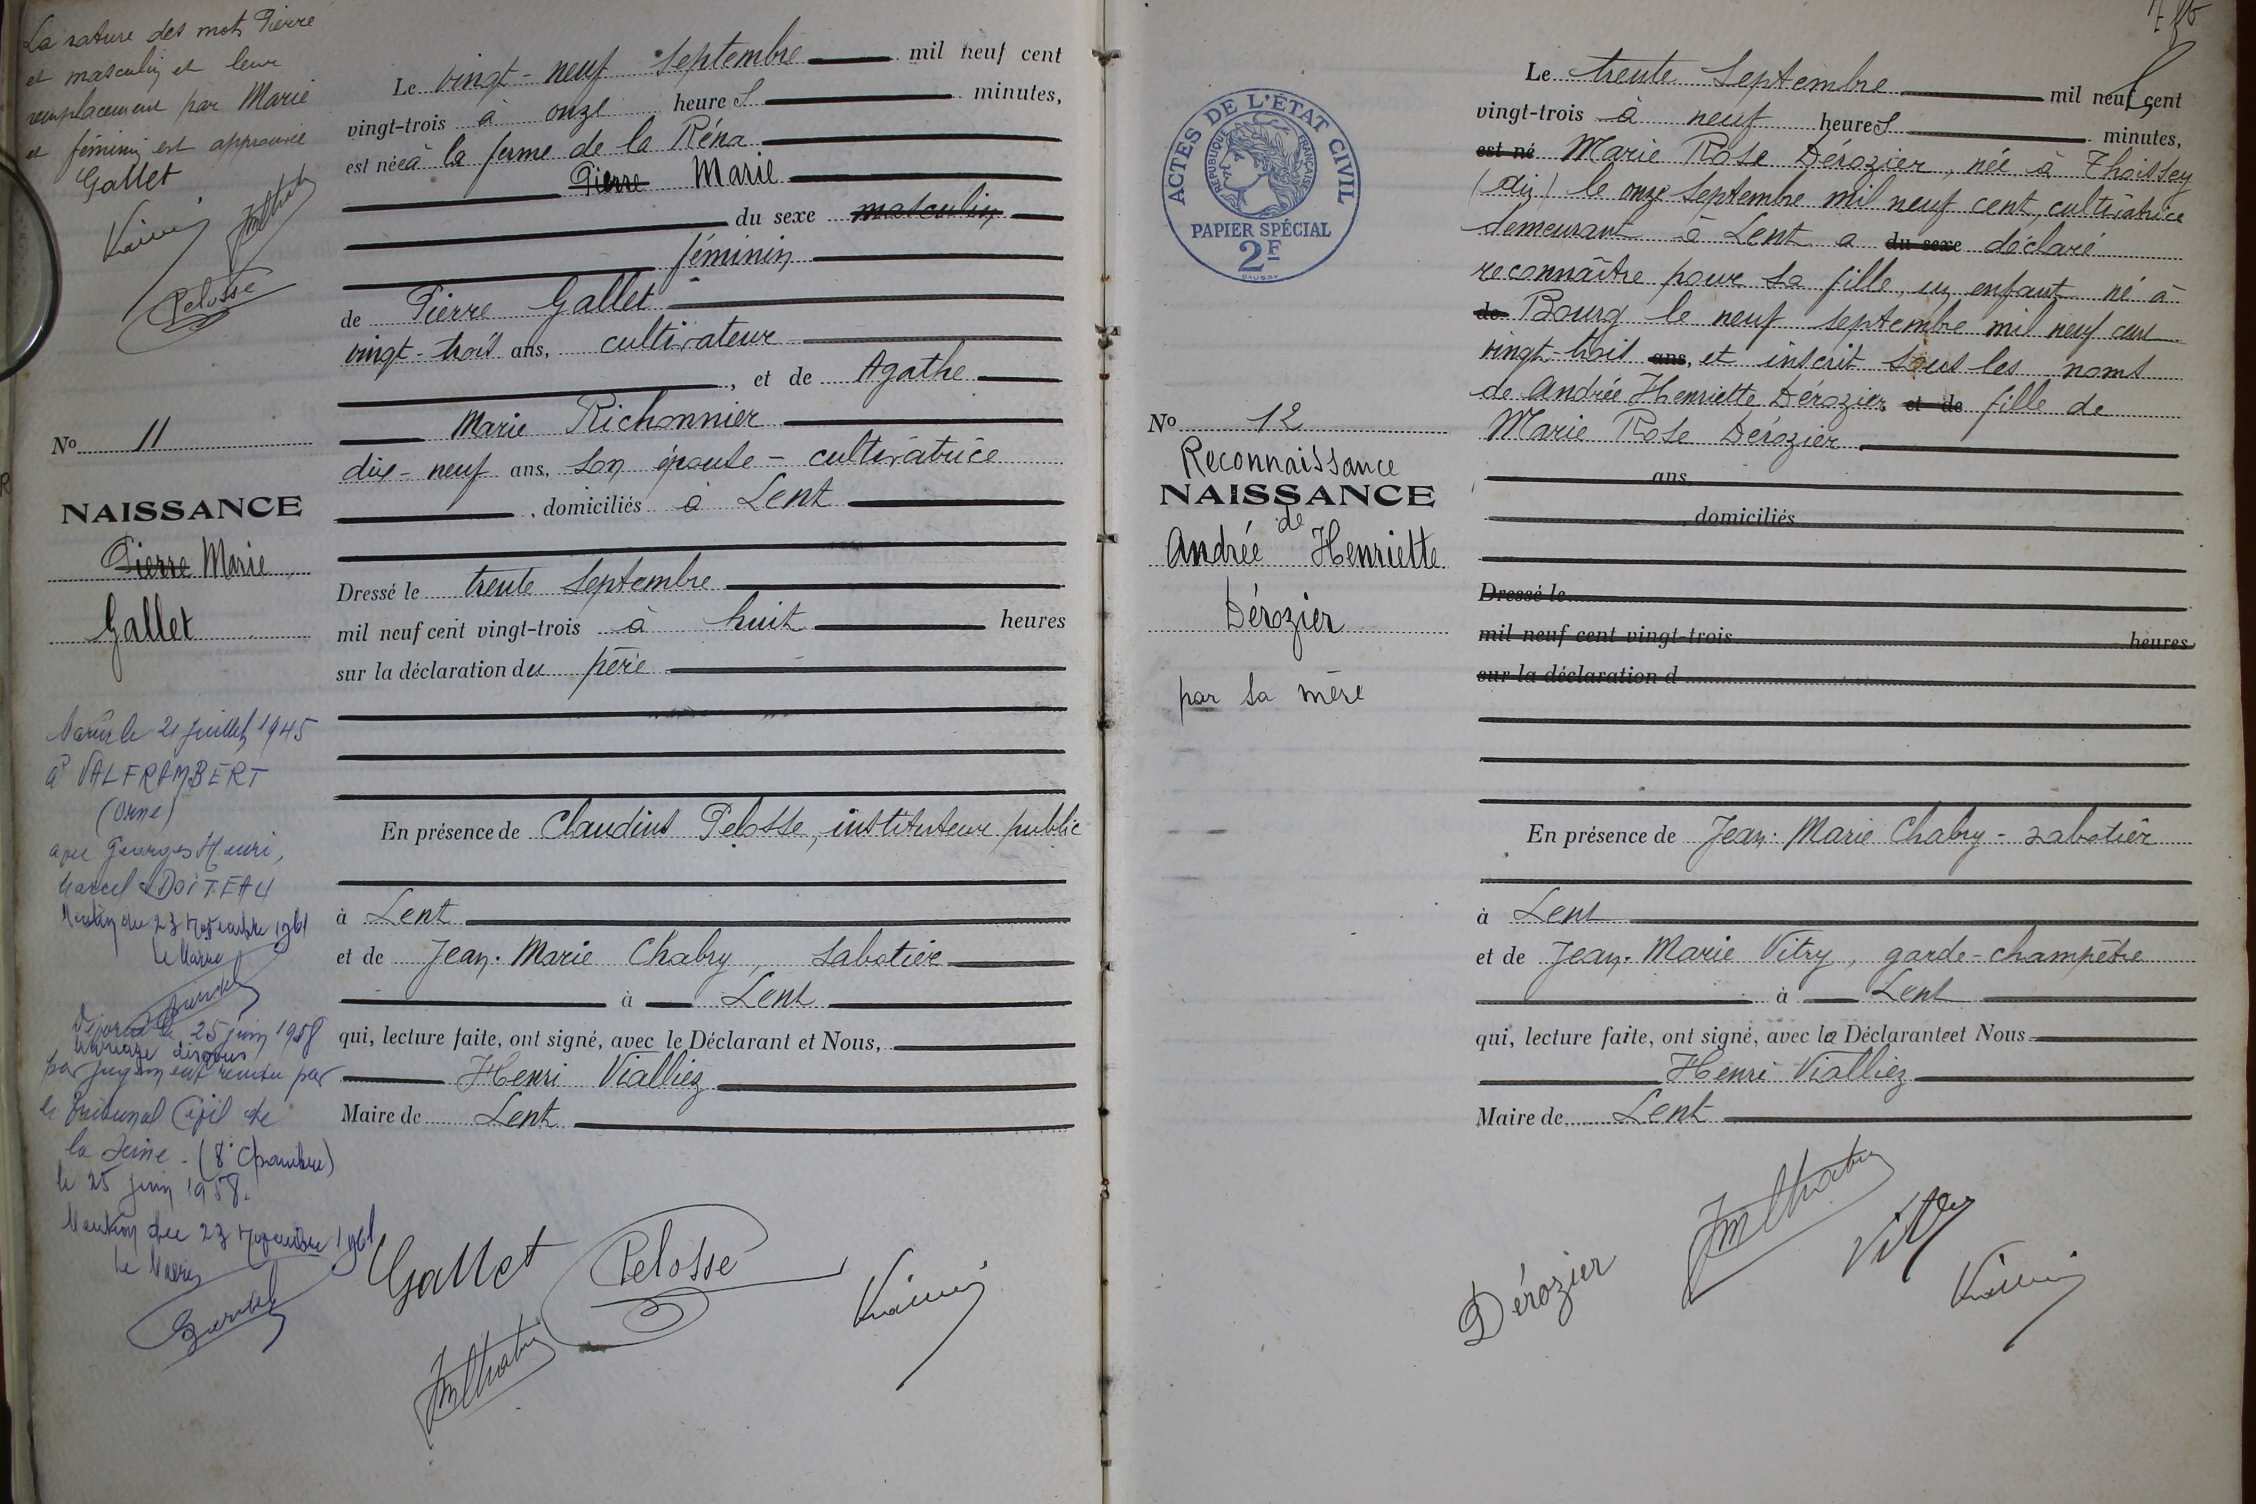 La rature des mots Pierre
et masculin et leur
remplacement par Marie
et féminin est approuvée
Gallet
Pelosse
Le vingt-neuf septembre mil neuf cent
vingt-trois à onze heures minutes,
est née à la ferme de la Réna
Pierre Marie
du sexe masculin
féminin
de Pierre Gallet
vingt-trois ans, cultivateur
, et de Agathe
Marie Richonnier
dix-neuf ans, son épouse - cultivatrice
, domiciliés à Lent
Dressé le trente septembre
mil neuf cent vingt-trois à huit heures
sur la déclaration du père
En présence de Claudius Pelosse, instituteur public
à Lent
et de Jean-Marie Chabry, sabotier
à Lent
qui, lecture faite, ont signé, avec le Déclarant et Nous,
Henri Vialliez
Maire de Lent
No 11
NAISSANCE
Pierre Marie
Gallet
Mariée le 21 juillet 1945
à VALFRAMBERT
(Orne)
avec Georges Henri,
Marcel DOITEAU
Mention du 23 novembre 1961
Le Maire
25 juin 1958
mariage dissous
par jugement rendu par
le Tribunal Civil de
la Seine - (8e Chambre)
le 25 juin 1958.
Mention du 23 novembre 1961
Le Maire
Gallet
Pelosse
ACTES DE L'ÉTAT CIVIL
RÉPUBLIQUE FRANÇAISE
PAPIER SPÉCIAL
2F
Le trente Septembre mil neuf cent
vingt-trois à neuf heures minutes,
est né Marie Rose Dérozier, née à Thoissey
(Ain) le onze Septembre mil neuf cent, cultivatrice
demeurant à Lent a du sexe déclaré
reconnaître pour sa fille, un enfant né à
de Bourg le neuf septembre mil neuf cent
vingt-trois ans, et inscrit sous les noms
de Andrée Henriette Dérozier, et de fille de
Marie Rose Dérozier
ans
, domiciliés
Dressé le
mil neuf cent vingt-trois heures
sur la déclaration d
En présence de Jean-Marie Chabry - sabotier
à Lent
et de Jean-Marie Vitry, garde-champêtre
à Lent
qui, lecture faite, ont signé, avec la Déclarante et Nous
Henri Vialliez
Maire de Lent
No 12
Reconnaissance
NAISSANCE
de
Andrée Henriette
Dérozier
par sa mère
Dérozier
Vitry